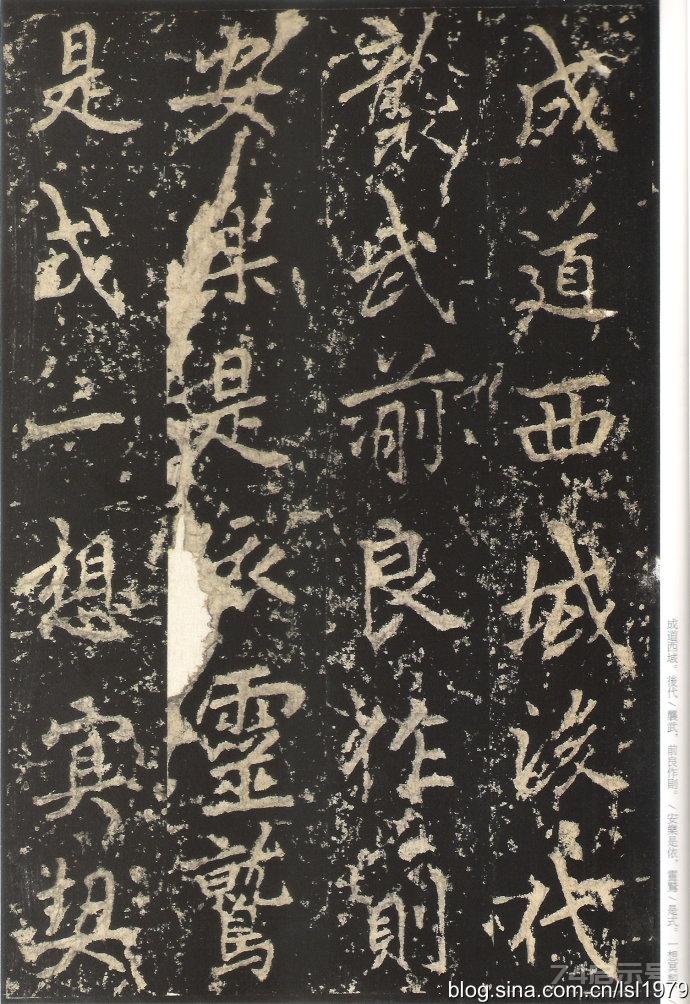 成道西域後代
襲武前良作則
安樂是依靈鷲
是式一想冥契
成道西域。後代／襲武，前良作則。／安樂是依，靈鷲／是式。一想冥契
blog.sina.com.cn/lsl1979